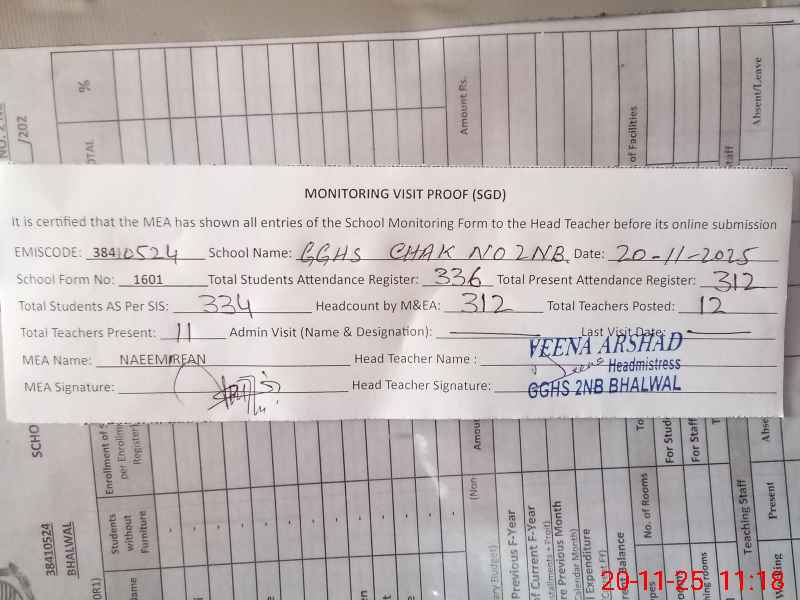 MONITORING VISIT PROOF (SGD)
It is certified that the MEA has shown all entries of the School Monitoring Form to the Head Teacher before its online submission
EMISCODE: 38410524 School Name: GGHS CHAK NO 2NB. Date: 20-11-2025
School Form No: 1601 Total Students Attendance Register: 336 Total Present Attendance Register: 312
Total Students AS Per SIS: 334 Headcount by M&EA: 312 Total Teachers Posted: 12
Total Teachers Present: 11 Admin Visit (Name & Designation): Last Visit Date:
MEA Name: NAEEMIRFAN Head Teacher Name : VEENA ARSHAD
Headmistress
MEA Signature: Head Teacher Signature: GGHS 2NB BHALWAL
%
/202
Amount Rs.
of Facilities
Absent/Leave
38410524
BHALWAL
Students
without
Furniture
Previous F-Year
of Current F-Year
Previous Month
Expenditure
Balance
No. of Rooms
For Staff
Teaching Staff
Present
20-11-25 11:18